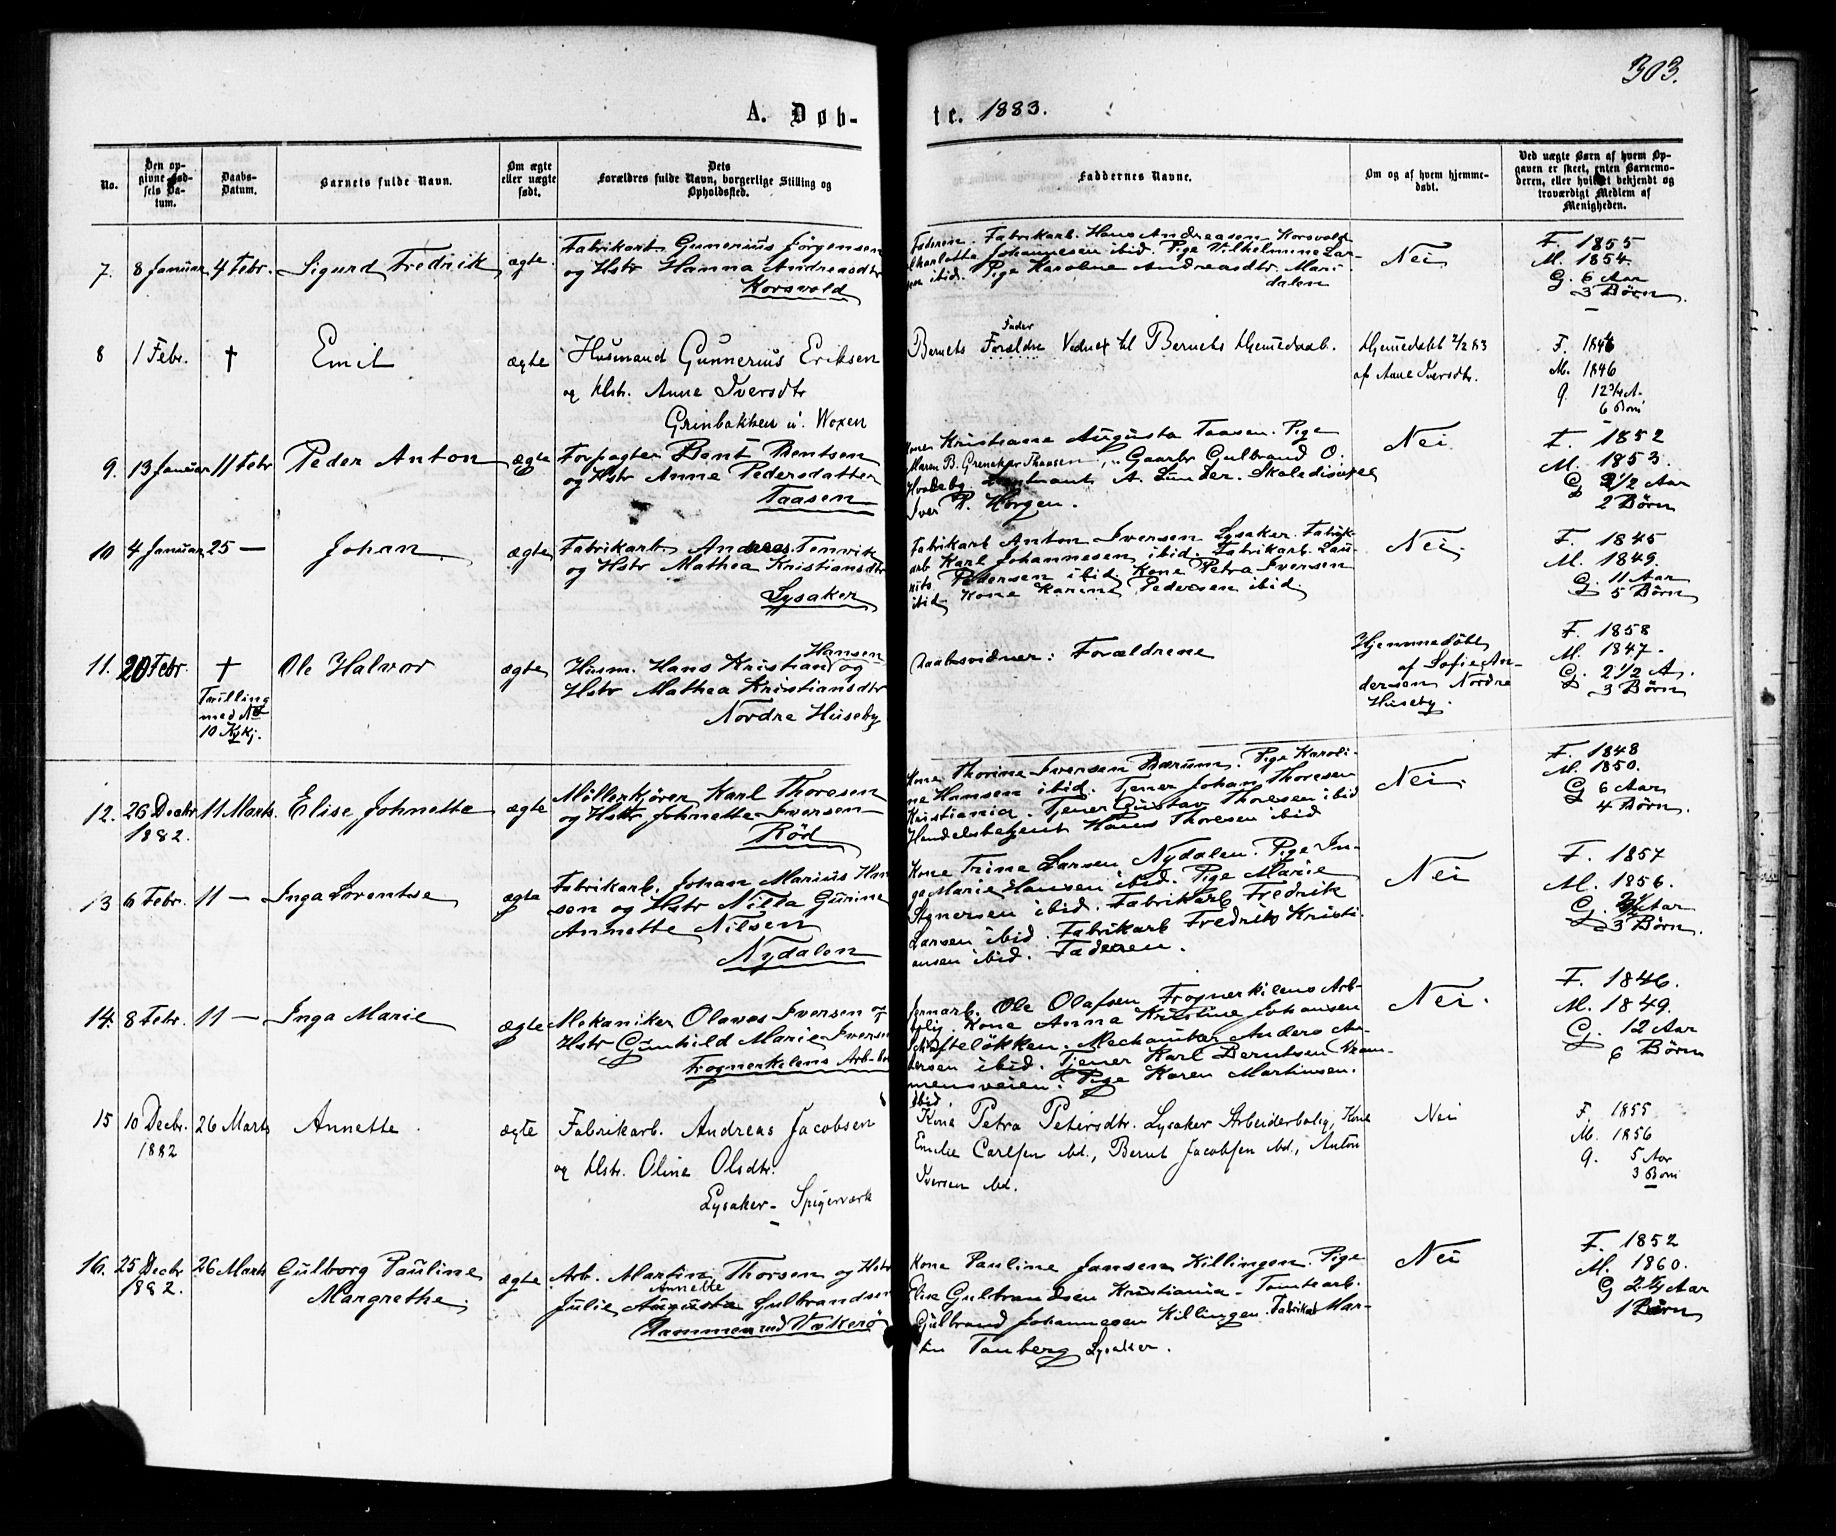 303.
A. Døb-
te. 1883.
No.
Den op-
givne Fød-
sels Da-
tum.
Daabs-
Datum.
Barnets fulde Navn.
Om ægte
eller uægte
født.
Dets
Forældres fulde Navn, borgerlige Stilling og
Opholdssted.
Faddernes Navne.
Om og af hvem hjemme-
døbt.
Ved uægte Børn af hvem Op-
gaven er skeet, enten Barnemo-
deren, eller hvilket bekjendt og
troværdigt Medlem af
Menigheden.
7. 8 Januar 4 Febr. Sigurd Fredrik ægte
Fabrikarb. Gunerius Jörgensen
og Hstr Hanna Andreasdtr
Korsvold
Faderen. Fabrikarb. Hans Andreasen Korsvold
Charlotte Johannesen ibid. Pige Vilhelmine Lar-
sen ibid. Pige Karoline Andreasdtr. Mari-
dalen
Nei
F. 1855
M. 1854.
G. 6 Aar
3 Börn.
8 1 Febr. † Emil ægte
Husmand Gunnerius Eriksen
og Hstr. Anne Iversdtr
Grinbakken u. Voxen
Fader
Barnets Forældre Vidner til Barnets Hjemmedaab.
Hjemmedøbt 2/2 83
af Anne Iversdtr.
F. 1846
M. 1846
G. 12 3/4 A.
6 Børn
9. 13 Januar 11 Febr Peder Anton ægte
Forpagter Bent Bentsen
og Hstr Anne Pedersdatter
Taasen
Kone Kristiane Augusta Taasen. Pige
Maren B. Grenekjær Thaasen, Gaarbr Gulbrand O.
A. Lunder. Skoledisipel
Iver P. Horgen.
Nei
F. 1852
M. 1853.
G 3 1/2 Aar
2 Börn
10 4 Januar 25 — Johan ægte
Fabrikarb. Andreas Tenvik
og Hstr Mathea Kristiansdtr
Lysaker
Fabrikarb Anton Iversen Lysaker. Fabrik-
arb Karl Johannesen ibid. Fabrikarb. Lau-
rits Pedersen ibid. Kone Petra Iversen
ibid. Kone Karine Pedersen ibid.
Nei.
F. 1845
M. 1849.
G. 11 Aar
5 Börn
11. 20 Febr. † Ole Halvor ægte
Tvilling
med No
10 Kvkj.
Hansen
Husm. Hans Kristian og
Hstr Mathea Kristiansdtr
Nordre Huseby
Daabsvidner: Forældrene
Hjemmedöbt
af Sofie An-
dersen Nordre
Huseby.
F. 1858
M. 1847.
G. 2 1/2 A.
3 Börn
12. 26 Decbr 11 Marts Elise Johnette ægte
1882.
Möllerkjörer Karl Thoresen
og Hstr Johnette Iversen
Röd
Kone Thorine Iversen Bærum. Pige Karoli-
ne Hansen ibid. Tjener Johan Thoresen
Kristiania. Tjener Gustav Thoresen ibid
Handelsbetjent Hans Thoresen ibid
Nei.
F. 1848
M. 1850.
G 6 Aar
4 Börn.
13 6 Febr. 11 — Inga Lorentse ægte
Fabrikarb. Johan Marius Han-
sen og Hstr Nilla Gurine
Annette Nilsen
Nydalen
Kone Trine Larsen Nydalen. Pige In-
ga Marie Hansen ibid. Pige Marie
Agnersen ibid. Fabrikarb Fredrik
Larsen ibid. Fabrikarb Fredrik Kristi-
ansen ibid. Faderen.
Nei
F. 1857
M. 1856.
Aar
3 Börn.
14. 8 Febr. 11 — Inga Marie ægte
Mekaniker Olavus Iversen og
Hstr Gunhild Marie Iversen
Frognerkilens Arb.bo
Jernarb. Ole Olafsen Frognerkilens Arb-
bolig. Kone Anna Kristine Johansen
Skøftelökken. Mechanikar Anders An-
dersen ibid. Tjener Karl Berntsen Dram-
mensveien. Pige Karen Martinsen.
ibid.
Nei.
F. 1846.
M. 1849.
G. 12 Aar
6 Börn
15 10 Decbr. 26 Marts Annette ægte
1882
Fabrikarb. Andreas Jacobsen
og Hstr. Oline Olsdtr.
Lysaker - Spigerværk
Kone Petra Petersdtr. Lysaker Arbeiderbolig, Kone
Emilie Carlsen ibd., Bernt Jacobsen ibd., Anton
Iversen ibd.
Nei
F. 1855
M. 1856
G. 5 Aar
3 Børn
16. 25 Decbr 26 Marts Gulborg Pauline ægte
1882. Margrethe.
Arb. Martin Thorsen og Hstr
Annette
Julie Augusta Gulbrandsen
Kone Pauline Jansen Killingen. Pige
Elise Gulbrandsen Kristiania. Tomtearb.
Gulbrand Johannesen Killingen. Fabrikarb Mar-
tin Tanberg Lysaker.
Nei
F. 1852
M. 1860.
G 2 1/2 Aar
1 Börn